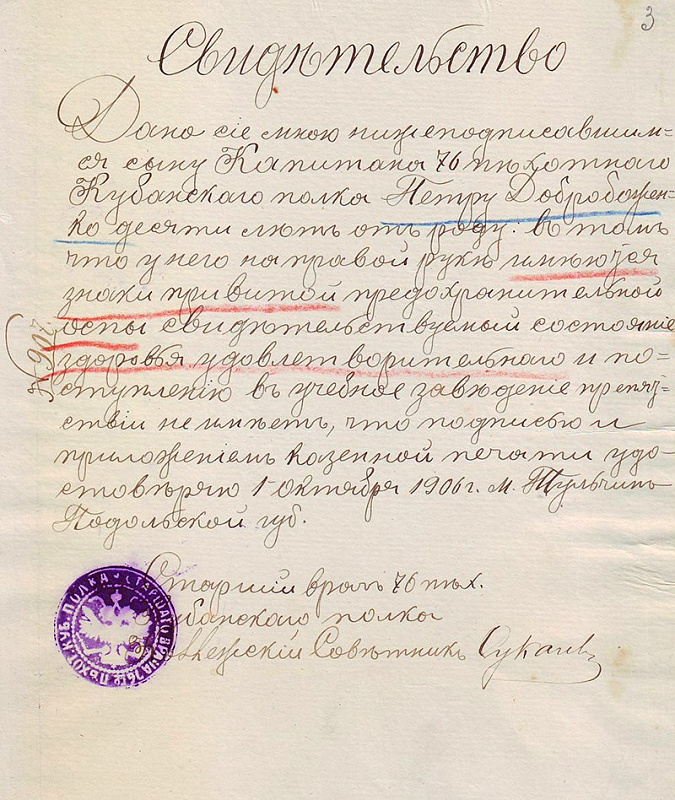 3
Свидѣтельство
Дано сіе мною нижеподписавшим=
ся сыну Капитана 76 пѣхотнаго
Кубанскаго полка Петру Добробожен-
ко десяти лѣтъ отъ роду. въ томъ
что у него на правой рукѣ имѣются
знаки привитой предохранительной
оспы свидѣтельствуемый состояніе
здоровья удовлетворительнаго и по=
ступленію въ учебное завѣденіе препят=
ствій не имѣетъ, что подписью и
приложеніемъ казенной печати удо-
стовѣряю 1 октября 1906 г. м. Тульчинъ
Подольской губ.
№ 907
Старшій врачъ 76 пѣх.
Кубанскаго полка
Совѣтникъ Сукачев
СТАРШАГО ВРАЧА 76го ПѢХОТ. КУБ. ПОЛКА